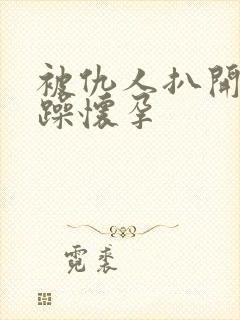 被仇人扒開
躁懷孕
霓裘